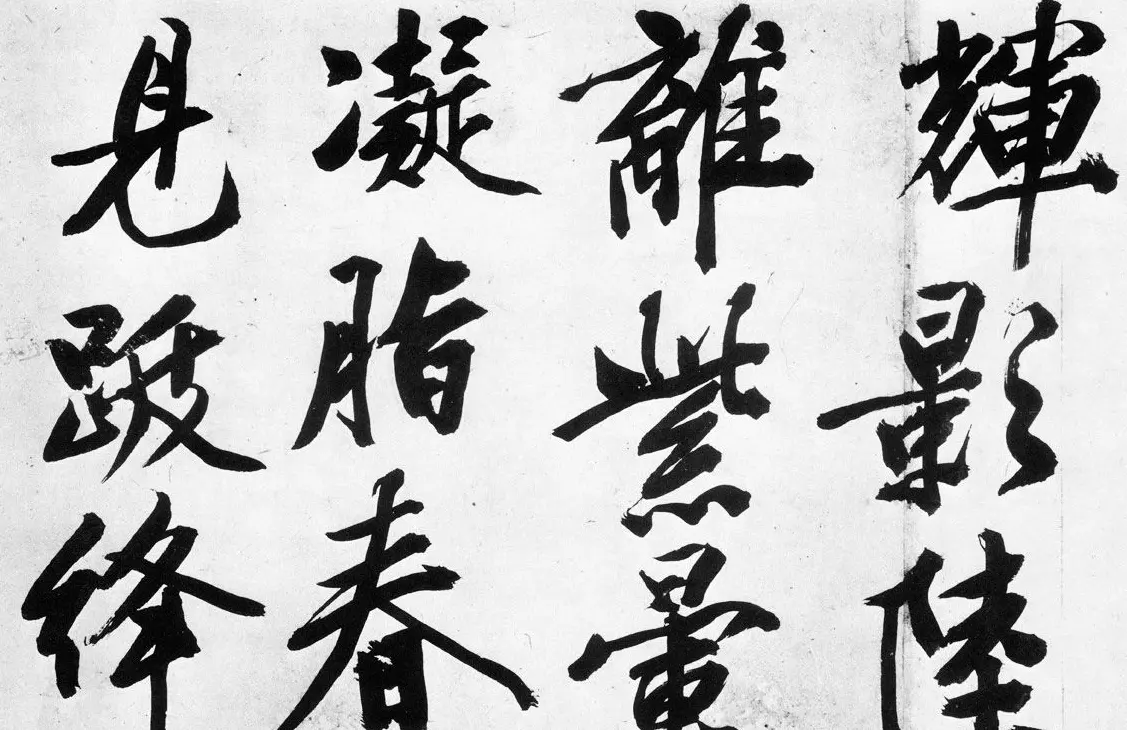 輝影陸
離紫暈
凝脂春
見跋絳